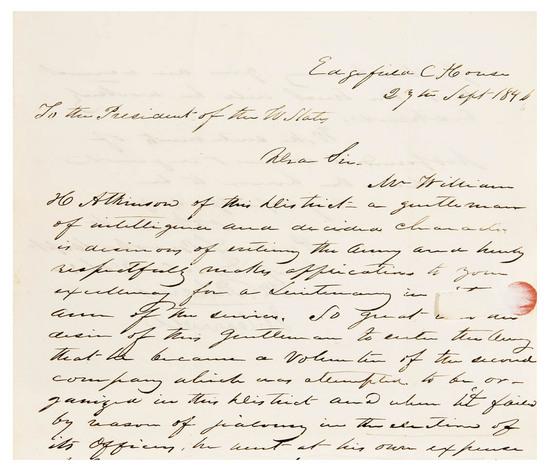 Edgefield C House
27th Sept 1846
To the President of the U States
Dear Sir.
Mr William
H Atkinson of this District a gentleman
of intelligence and decided character
is desirous of entering the Army and hereby
respectfully makes application to your
excellency for a Lieutenancy in
arm of the service. So great
desire of this Gentleman to enter the Army
that he became a Volunteer of the second
company which was attempted to be or-
ganized in this District and when it failed
by reason of jealousy in the election of
its Officers, he went at his own expense